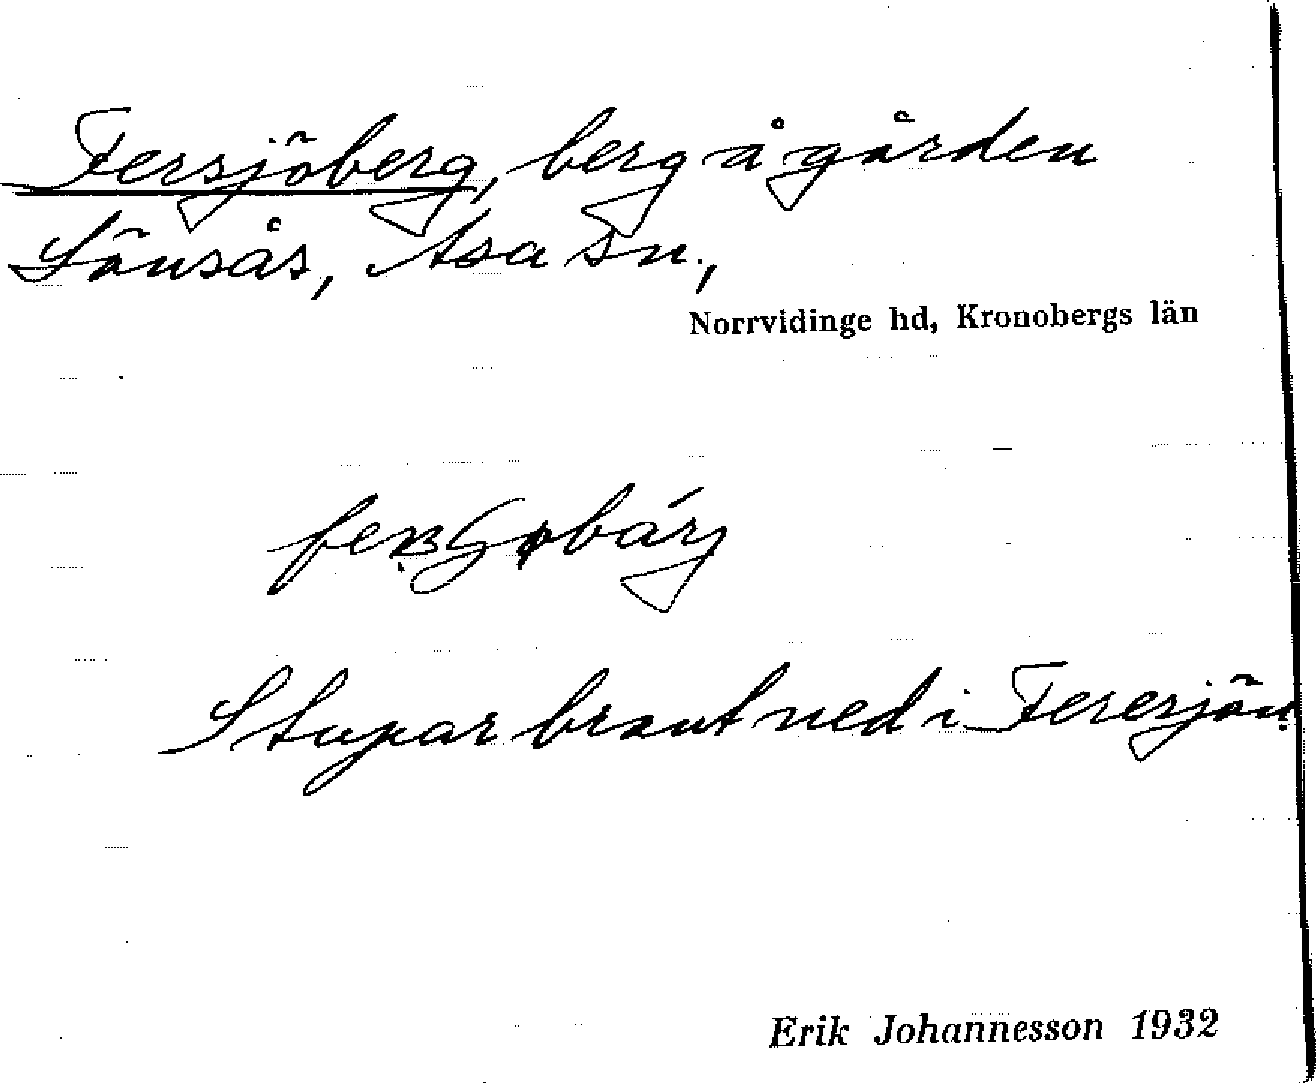 Fersjöberg, berg å gården
Lönsås, Asa sn.,
Norrvidinge hd, Kronobergs län
Stupar brant ned i Feresjön.
Erik Johannesson 1932